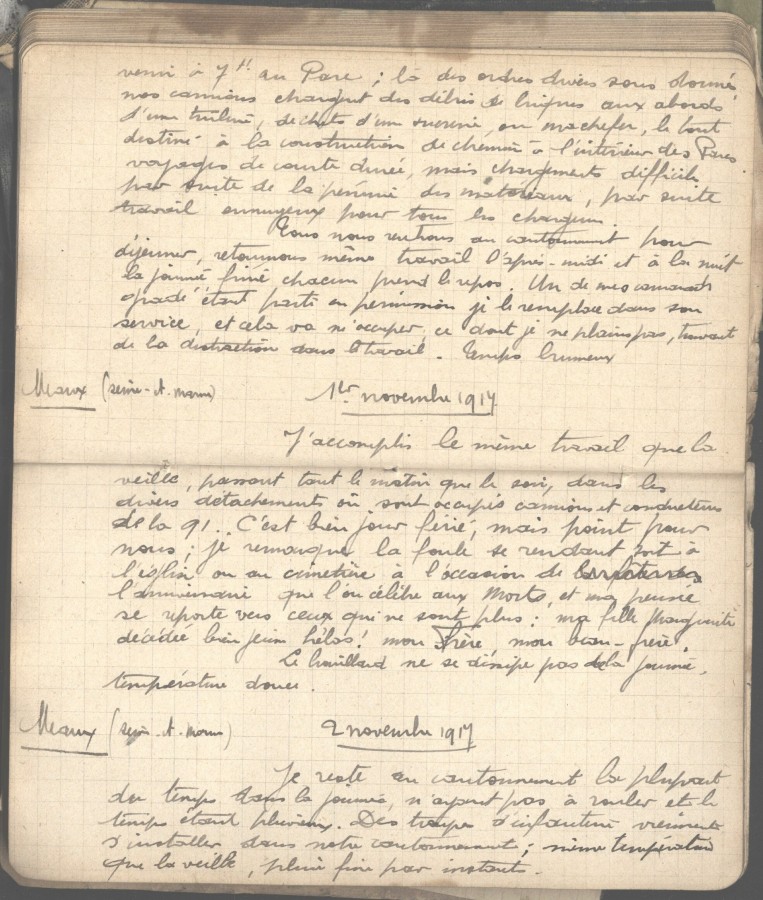 venir à 7h au Parc ; là des ordres divers sous donnés,
nos camions chargent des débris de briques aux abords
d'une tuilerie, déchets d'un sucrerie, ou machefer, le tout
destiné à la construction de chemin à l'intérieur des Parcs
voyages de courte durée, mais chargements difficile
par suite de la pénurie des matériaux, par suite
travail ennuyeux pour tous les chargeurs.
Nous nous rentrons au cantonnement pour
déjeuner, retournons même travail l'après-midi et à la nuit
la journée finie chacun prend le repos. Un de mes camarades
gradé étant parti en permission je le remplace dans son
service, et cela va m'occuper, ce dont je ne plains pas, trouvant
de la distraction dans le travail. Temps brumeux
Meaux (Seine-et-marne) 1er novembre 1917
J'accomplis le même travail que la
veille, passant tout le matin que le soir, dans les
divers détachements où sont occupés camions et conducteurs
de la 91. C'est bien jour férié, mais point pour
nous ; je remarque la foule se rendant soit à
l'église ou au cimetière à l'occasion de
l'anniversaire que l'on célèbre aux Morts, et ma pensée
se reporte vers ceux qui ne sont plus : ma fille Marguerite
décédée bien jeune hélas ! mon Frère, mon beau-frère.
Le brouillard ne se dissipe pas de la journée,
température douce.
Meaux (Seine-et-Marne) 2 novembre 1917
Je reste au cantonnement la plupart
du temps dans la journée, n'ayant pas à rouler et le
temps étant pluvieux. Des troupes d'infanterie viennent
s'installer dans notre cantonnement ; même température
que la veille, pluie fine par instants.